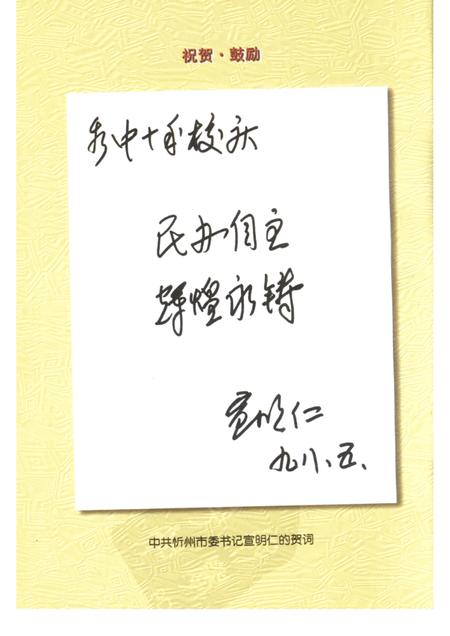 祝贺·鼓励
秀中十年校庆
民办自主
辉煌永铸
宣明仁
九八.五.
中共忻州市委书记宣明仁的贺词